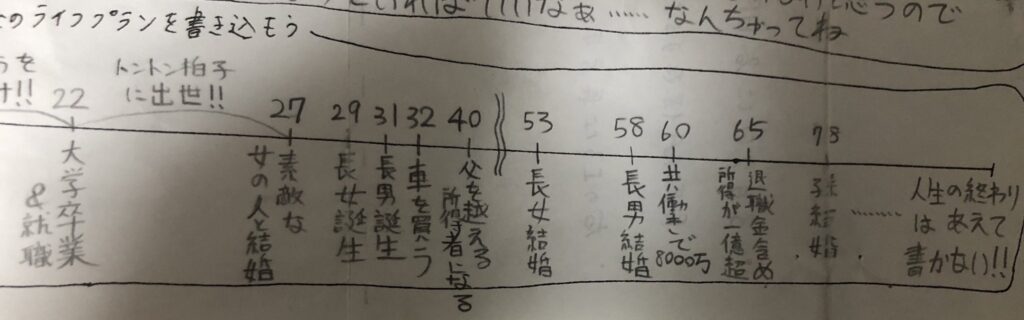 なぁ…… なんちゃってね
のライフプランを書き込もう
トントン拍子
に出世!!
22
大学卒業
&就職
27
素敵な
女の人と結婚
29
長女誕生
31
長男誕生
32
車を買う
40
父を越える
所得者になる
53
長女結婚
58
長男結婚
60
共働きで
8000万
65
退職金含め
所得が一億超
78
結婚
………
人生の終わり
は あえて
書かない!!